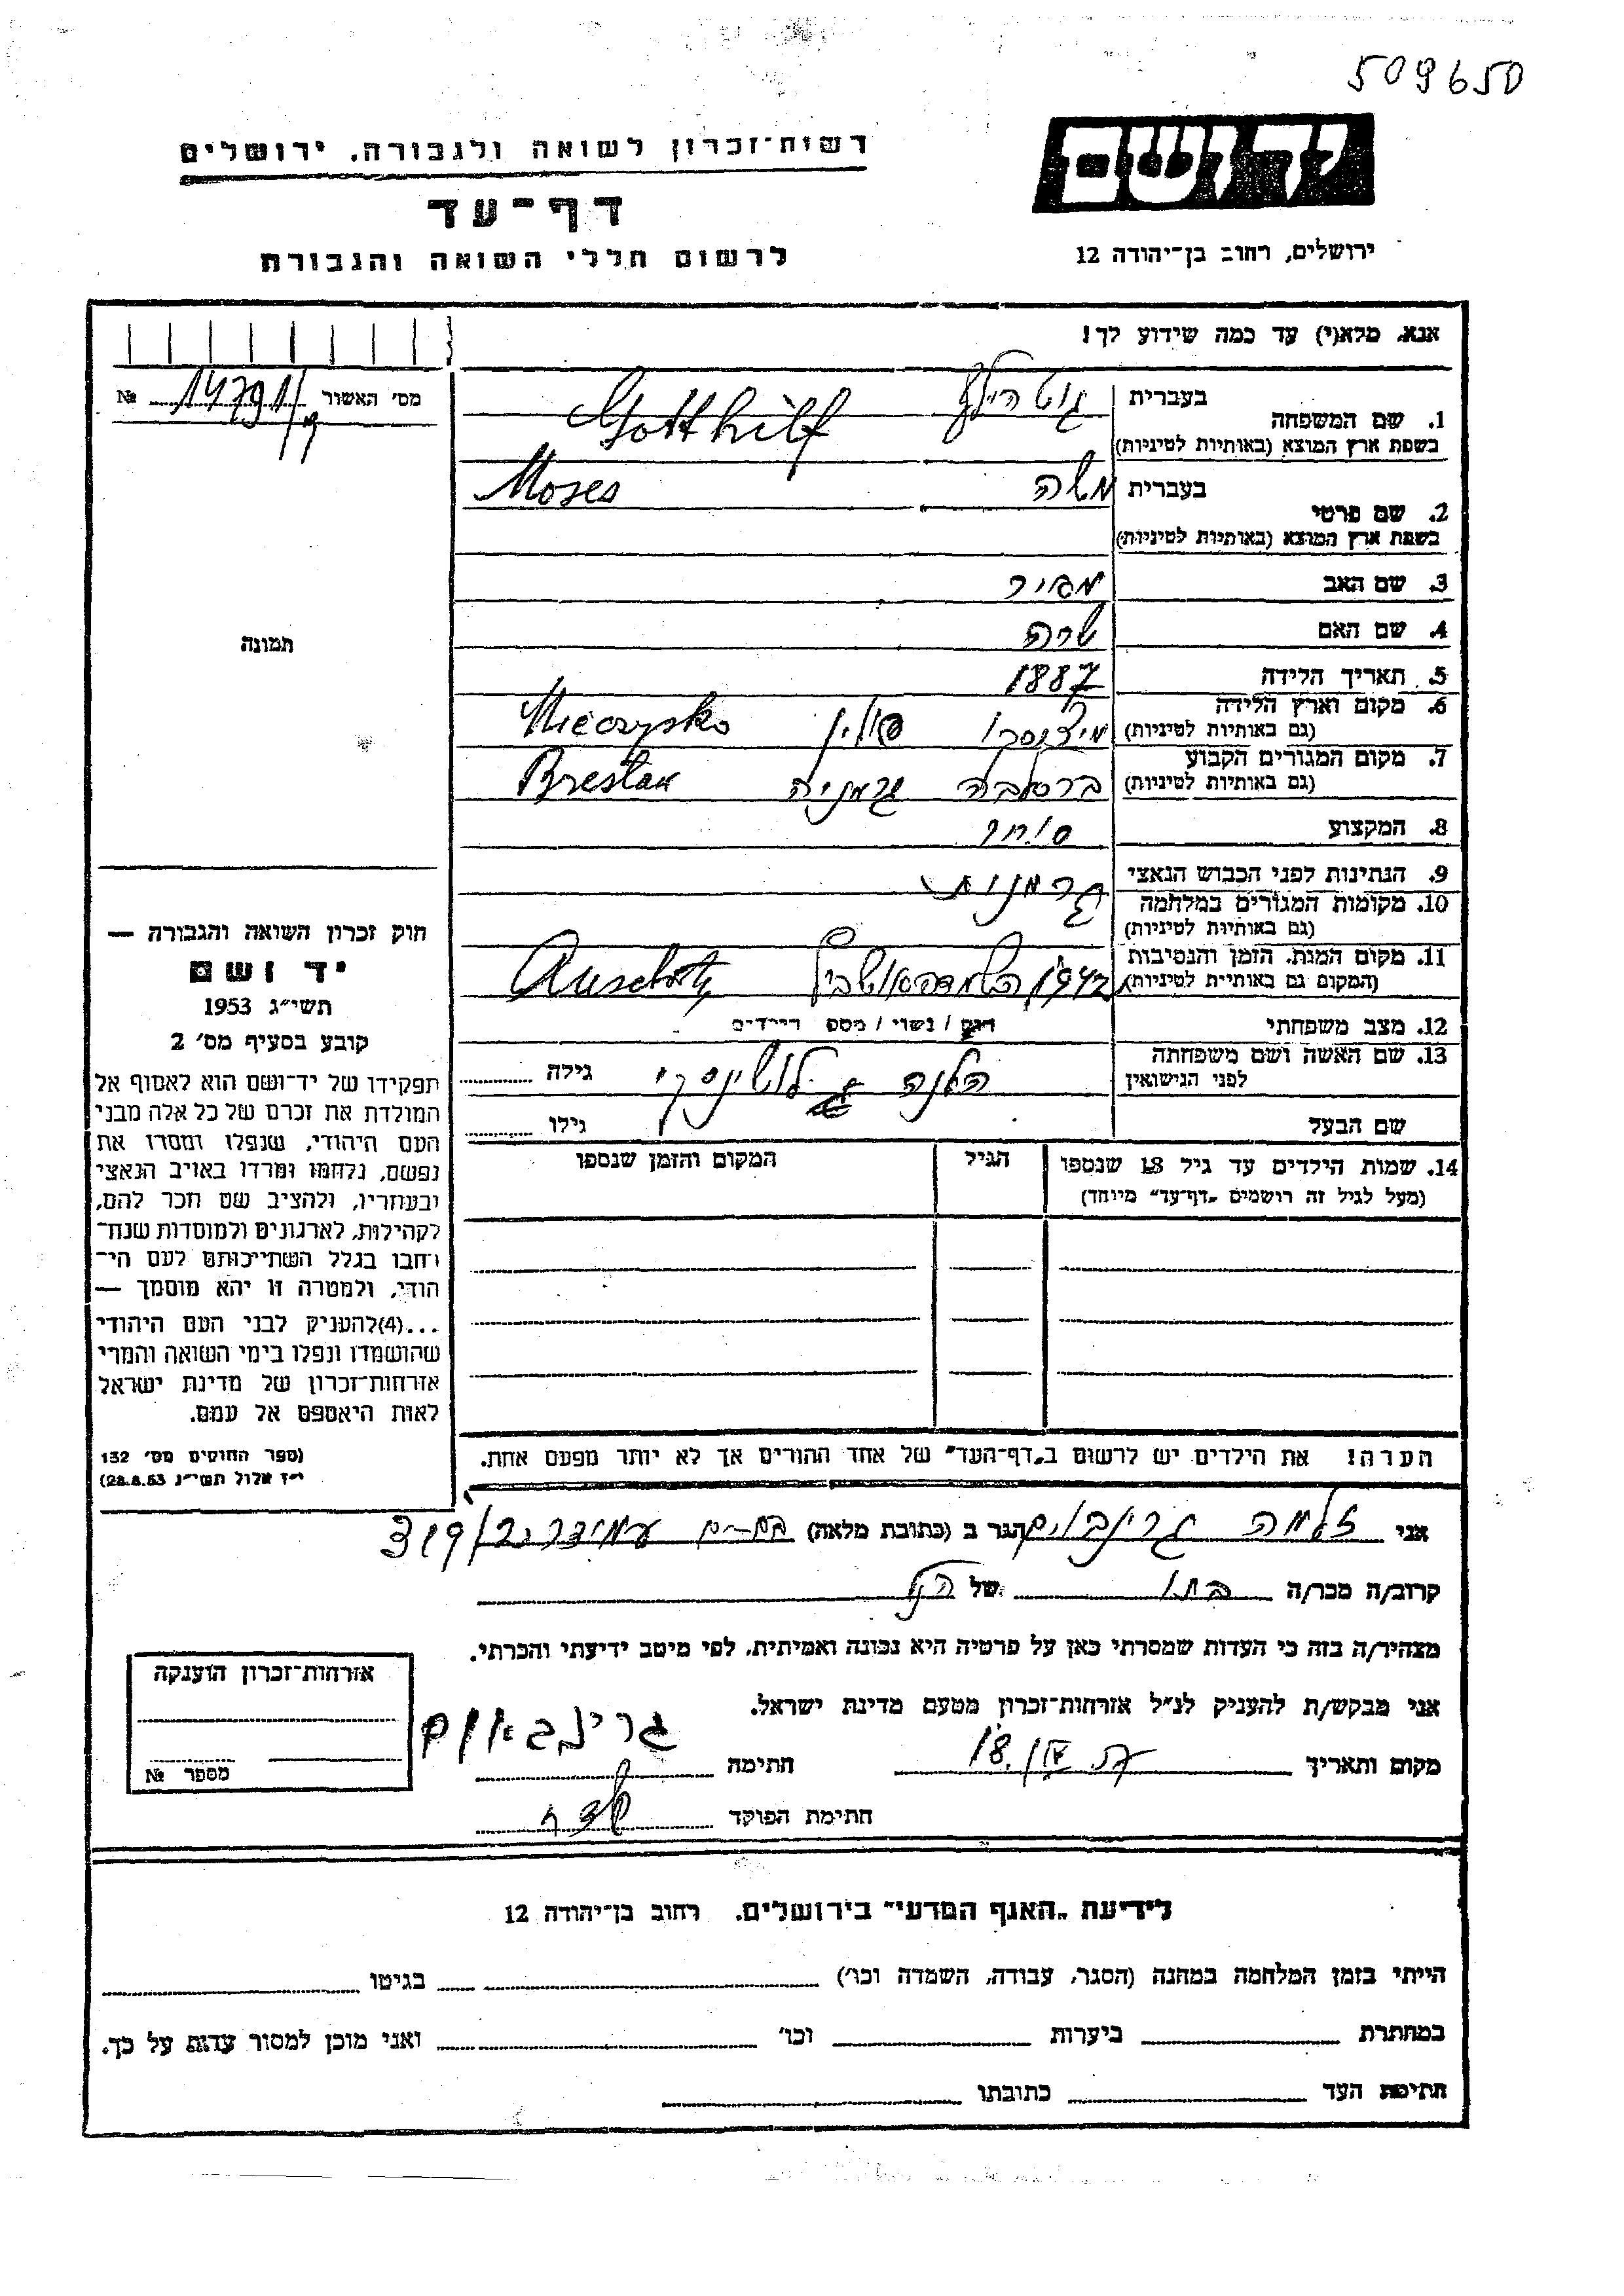 509650
יד ושם
רשות־זכרון לשואה ולגבורה, ירושלים
דף־עד
ירושלים, רחוב בן־יהודה 12
לרשום חללי השואה והגבורה
אנא, מלא(י) עד כמה שידוע לך!
מס' האשור № 14791/
1. שם המשפחה
בעברית גוטהילף
בשפת ארץ המוצא (באותיות לטיניות) Gotthilf
2. שם פרטי
בעברית משה Moses
בשפת ארץ המוצא (באותיות לטיניות)
3. שם האב מאיר
4. שם האם שרה
5. תאריך הלידה 1887
6. מקום וארץ הלידה
(גם באותיות לטיניות) פולין
7. מקום המגורים הקבוע
(גם באותיות לטיניות) גרמניה Breslau
8. המקצוע סוחר
9. הנתינות לפני הכבוש הנאצי גרמנית
10. מקומות המגורים במלחמה
(גם באותיות לטיניות)
11. מקום המות, הזמן והנסיבות
(המקום גם באותיות לטיניות) 1942
12. מצב משפחתי רווק / נשוי / מספר הילדים
13. שם האשה ושם משפחתה
לפני הנישואין הלנה גילה
שם הבעל גילו
14. שמות הילדים עד גיל 18 שנספו
(מעל לגיל זה רושמים "דף־עד" מיוחד)
הגיל
המקום והזמן שנספו
הערה! את הילדים יש לרשום ב"דף־העד" של אחד ההורים אך לא יותר מפעם אחת.
תמונה
חוק זכרון השואה והגבורה —
יד ושם
תשי"ג 1953
קובע בסעיף מס' 2
תפקידו של יד־ושם הוא לאסוף אל
המולדת את זכרם של כל אלה מבני
העם היהודי, שנפלו ומסרו את
נפשם, נלחמו ומרדו באויב הנאצי
ובעוזריו, ולהציב שם וזכר להם,
לקהילות, לארגונים ולמוסדות שנח־
רבו בגלל השתייכותם לעם הי־
הודי, ולמטרה זו יהא מוסמך —
...(4)להעניק לבני העם היהודי
שהושמדו ונפלו בימי השואה והמרי
אזרחות־זכרון של מדינת ישראל
לאות היאספם אל עמם.
(ספר החוקים מס' 132
י"ז אלול תשי"ג 28.8.53)
אני זלמה גרינבוים הגר ב (כתובת מלאה) עמידר
קרוב/ה מכר/ה בתו של הנ"ל
מצהיר/ה בזה כי העדות שמסרתי כאן על פרטיה היא נכונה ואמיתית, לפי מיטב ידיעתי והכרתי.
אני מבקש/ת להעניק לנ"ל אזרחות־זכרון מטעם מדינת ישראל.
מקום ותאריך חתימה גרינבאום
חתימת הפוקד
אזרחות־זכרון הוענקה
מספר №
לידיעת "האגף המדעי" בירושלים, רחוב בן־יהודה 12
הייתי בזמן המלחמה במחנה (הסגר, עבודה, השמדה וכו') בגיטו
במחתרת ביערות וכו' ואני מוכן למסור עדות על כך.
חתימת העד כתובתו